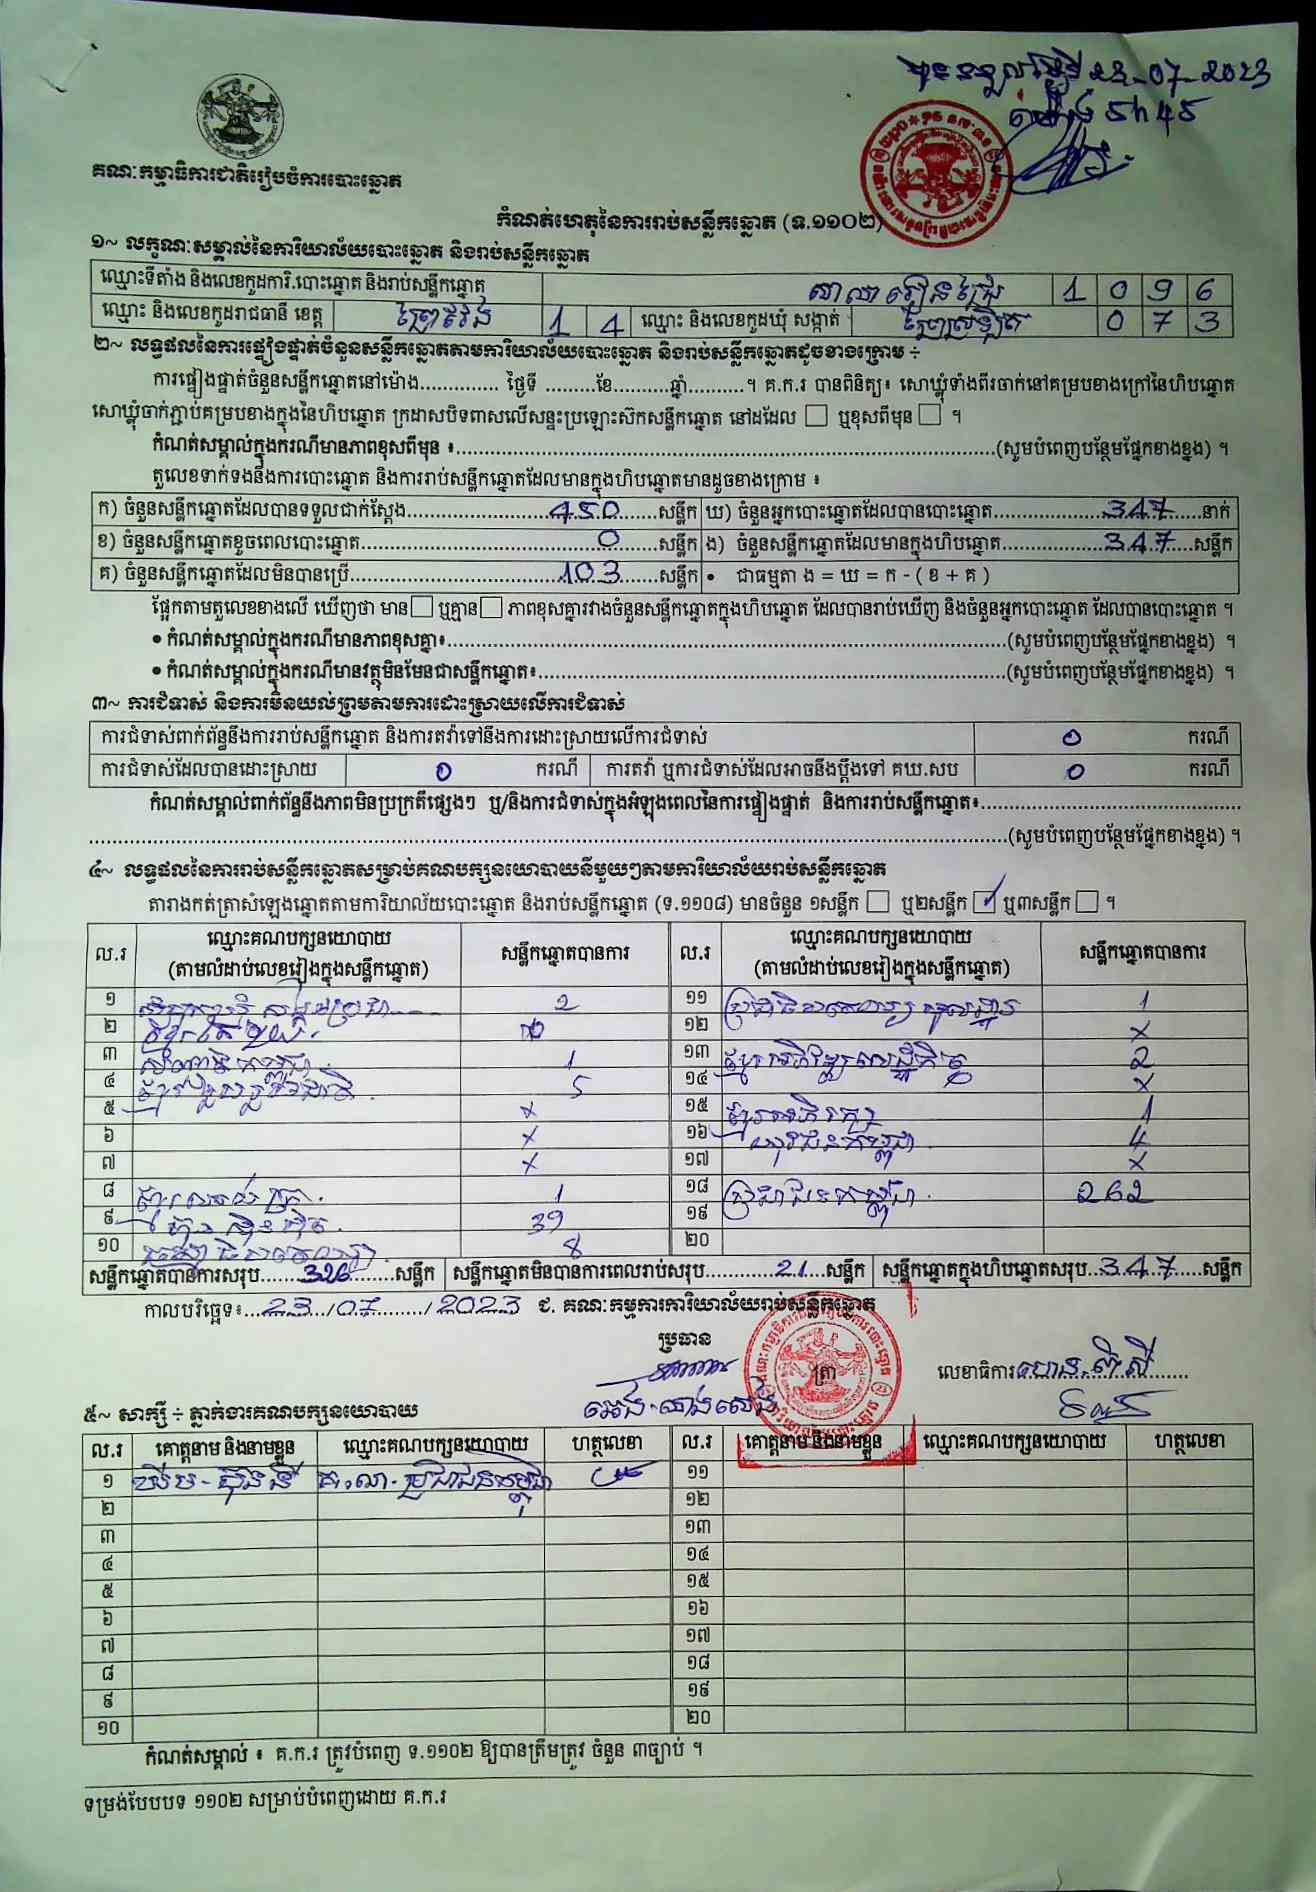 23-07-2023
ម៉ោង 5h45
គណៈកម្មាធិការជាតិរៀបចំការបោះឆ្នោត
កំណត់ហេតុនៃការរាប់សន្លឹកឆ្នោត (ទ.១១០២)
១~ លក្ខណៈសម្គាល់នៃការិយាល័យបោះឆ្នោត និងរាប់សន្លឹកឆ្នោត
ឈ្មោះទីតាំង និងលេខកូដការិ.បោះឆ្នោត និងរាប់សន្លឹកឆ្នោត សាលារៀន 1 0 9 6
ឈ្មោះ និងលេខកូដរាជធានី ខេត្ត ព្រៃវែង 1 4 ឈ្មោះ និងលេខកូដឃុំ សង្កាត់ 0 7 3
២~ លទ្ធផលនៃការផ្ទៀងផ្ទាត់ចំនួនសន្លឹកឆ្នោតតាមការិយាល័យបោះឆ្នោត និងរាប់សន្លឹកឆ្នោតដូចខាងក្រោម ÷
ការផ្ទៀងផ្ទាត់ចំនួនសន្លឹកឆ្នោតនៅម៉ោង.............. ថ្ងៃទី .........ខែ..........ឆ្នាំ..........។ គ.ក.រ បានពិនិត្យ៖ សោឃ្លុំទាំងពីរចាក់នៅគម្របខាងក្រៅនៃហិបឆ្នោត
សោឃ្លុំចាក់ភ្ជាប់គម្របខាងក្នុងនៃហិបឆ្នោត ក្រដាសបិទពាសលើសន្ទះប្រឡោះស៊កសន្លឹកឆ្នោត នៅដដែល ☐ ឬខុសពីមុន ☐ ។
កំណត់សម្គាល់ក្នុងករណីមានភាពខុសពីមុន ៖..........(សូមបំពេញបន្ថែមផ្នែកខាងខ្នង) ។
តួលេខទាក់ទងនឹងការបោះឆ្នោត និងការរាប់សន្លឹកឆ្នោតដែលមានក្នុងហិបឆ្នោតមានដូចខាងក្រោម ៖
ក) ចំនួនសន្លឹកឆ្នោតដែលបានទទួលជាក់ស្តែង..........450..........សន្លឹក ឃ) ចំនួនអ្នកបោះឆ្នោតដែលបានបោះឆ្នោត..........347..........នាក់
ខ) ចំនួនសន្លឹកឆ្នោតខូចពេលបោះឆ្នោត..........0..........សន្លឹក ង) ចំនួនសន្លឹកឆ្នោតដែលមានក្នុងហិបឆ្នោត..........347..........សន្លឹក
គ) ចំនួនសន្លឹកឆ្នោតដែលមិនបានប្រើ..........103..........សន្លឹក • ជាធម្មតា ង = ឃ = ក - ( ខ + គ )
ផ្អែកតាមតួលេខខាងលើ ឃើញថា មាន ☐ ឬគ្មាន ☐ ភាពខុសគ្នារវាងចំនួនសន្លឹកឆ្នោតក្នុងហិបឆ្នោត ដែលបានរាប់ឃើញ និងចំនួនអ្នកបោះឆ្នោត ដែលបានបោះឆ្នោត ។
• កំណត់សម្គាល់ក្នុងករណីមានភាពខុសគ្នា៖..........(សូមបំពេញបន្ថែមផ្នែកខាងខ្នង) ។
• កំណត់សម្គាល់ក្នុងករណីមានវត្ថុមិនមែនជាសន្លឹកឆ្នោត៖..........(សូមបំពេញបន្ថែមផ្នែកខាងខ្នង) ។
៣~ ការជំទាស់ និងការមិនយល់ព្រមតាមការដោះស្រាយលើការជំទាស់
ការជំទាស់ពាក់ព័ន្ធនឹងការរាប់សន្លឹកឆ្នោត និងការតវ៉ាទៅនឹងការដោះស្រាយលើការជំទាស់ 0 ករណី
ការជំទាស់ដែលបានដោះស្រាយ 0 ករណី ការតវ៉ា ឬការជំទាស់ដែលអាចនឹងប្តឹងទៅ គឃ.សប 0 ករណី
កំណត់សម្គាល់ពាក់ព័ន្ធនឹងភាពមិនប្រក្រតីផ្សេងៗ ឬ/និងការជំទាស់ក្នុងអំឡុងពេលនៃការផ្ទៀងផ្ទាត់ និងការរាប់សន្លឹកឆ្នោត៖..........
..........(សូមបំពេញបន្ថែមផ្នែកខាងខ្នង) ។
៤~ លទ្ធផលនៃការរាប់សន្លឹកឆ្នោតសម្រាប់គណបក្សនយោបាយនីមួយៗតាមការិយាល័យរាប់សន្លឹកឆ្នោត
តារាងកត់ត្រាសំឡេងឆ្នោតតាមការិយាល័យបោះឆ្នោត និងរាប់សន្លឹកឆ្នោត (ទ.១១០៨) មានចំនួន ១សន្លឹក ☐ ឬ២សន្លឹក ☑ ឬ៣សន្លឹក ☐ ។
ល.រ ឈ្មោះគណបក្សនយោបាយ (តាមលំដាប់លេខរៀងក្នុងសន្លឹកឆ្នោត) សន្លឹកឆ្នោតបានការ ល.រ ឈ្មោះគណបក្សនយោបាយ (តាមលំដាប់លេខរៀងក្នុងសន្លឹកឆ្នោត) សន្លឹកឆ្នោតបានការ
១ 2 ១១ 1
២ ១២ x
៣ 1 ១៣ 2
៤ 5 ១៤ x
៥ x ១៥ 1
៦ x ១៦ យុវជនកម្ពុជា 4
៧ x ១៧ x
៨ 1 ១៨ ប្រជាជនកម្ពុជា 262
៩ ហ្វ៊ុនស៊ិនប៉ិច 39 ១៩
១០ 8 ២០
សន្លឹកឆ្នោតបានការសរុប........326........សន្លឹក សន្លឹកឆ្នោតមិនបានការពេលរាប់សរុប........21....សន្លឹក សន្លឹកឆ្នោតក្នុងហិបឆ្នោតសរុប...347......សន្លឹក
កាលបរិច្ឆេទ៖...23.../07......./2023 ជ. គណៈកម្មការការិយាល័យរាប់សន្លឹកឆ្នោត
ប្រធាន
ត្រា
លេខាធិការ
៥~ សាក្សី ÷ ភ្នាក់ងារគណបក្សនយោបាយ
ល.រ គោត្តនាម និងនាមខ្លួន ឈ្មោះគណបក្សនយោបាយ ហត្ថលេខា ល.រ គោត្តនាម និងនាមខ្លួន ឈ្មោះគណបក្សនយោបាយ ហត្ថលេខា
១ ប្រជាជនកម្ពុជា ១១
២ ១២
៣ ១៣
៤ ១៤
៥ ១៥
៦ ១៦
៧ ១៧
៨ ១៨
៩ ១៩
១០ ២០
កំណត់សម្គាល់ ៖ គ.ក.រ ត្រូវបំពេញ ទ.១១០២ ឱ្យបានត្រឹមត្រូវ ចំនួន ៣ច្បាប់ ។
ទម្រង់បែបបទ ១១០២ សម្រាប់បំពេញដោយ គ.ក.រ